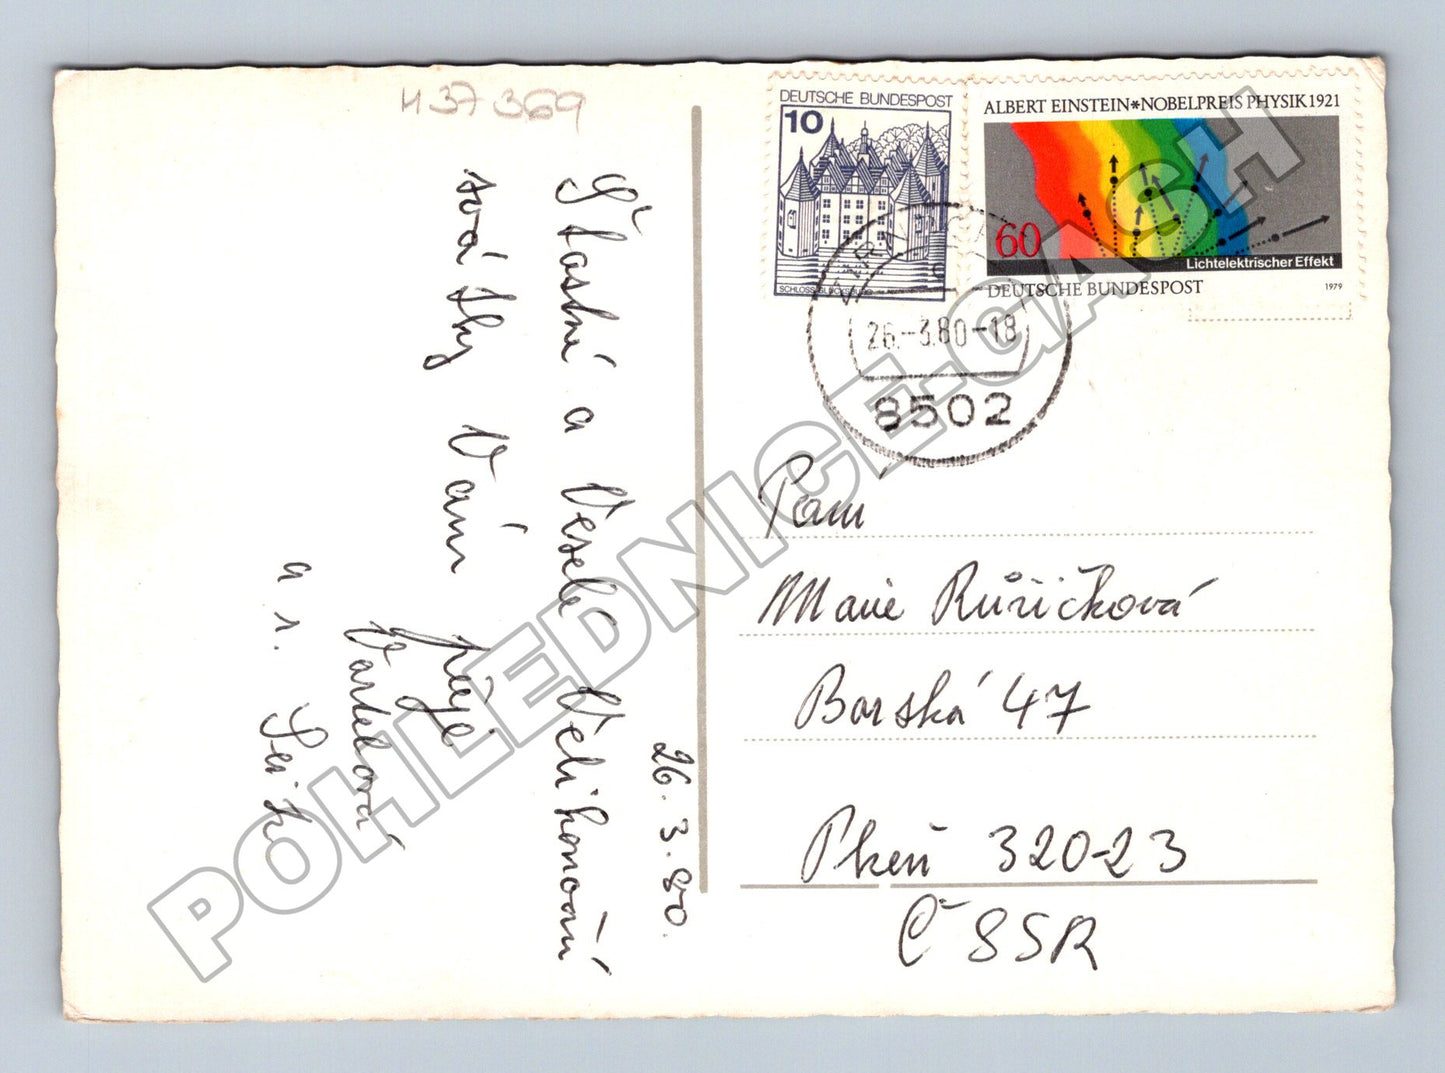 H37369
26. 3. 80.
Šťastné a Veselé Velikonoční
svátky Vám přeje
Bartelová
a s.
DEUTSCHE BUNDESPOST
10
SCHLOSS GLÜCKSBURG
ALBERT EINSTEIN*NOBELPREIS PHYSIK 1921
60
Lichtelektrischer Effekt
DEUTSCHE BUNDESPOST
1979
26.-3.80-18
8502
Paní
Marie Růžičková
Borská 47
Plzeň 320-23
ČSSR
POHLEDNICE-GASH